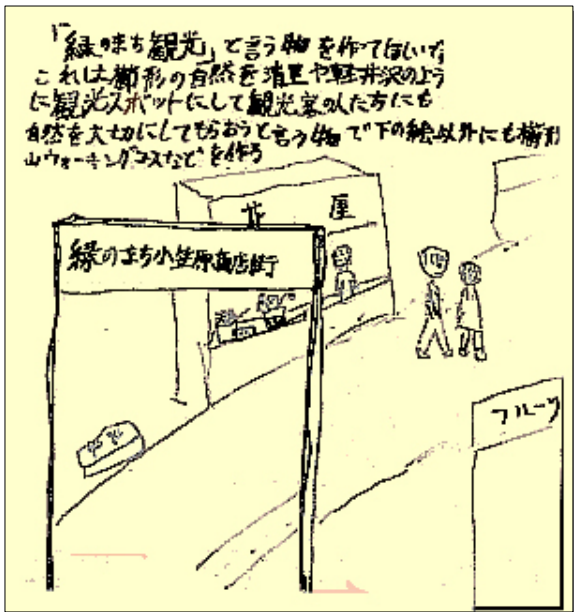 「緑のまち観光」と言う物を作ってほしいです
これは櫛形の自然を清里や軽井沢のよう
に観光スポットにして観光客の人方にも
自然を大切にしてもらおうと言う物で下の絵以外にも櫛形
山ウォーキングコースなどを作る
花屋
緑のまち小笠原商店街
フルーツ